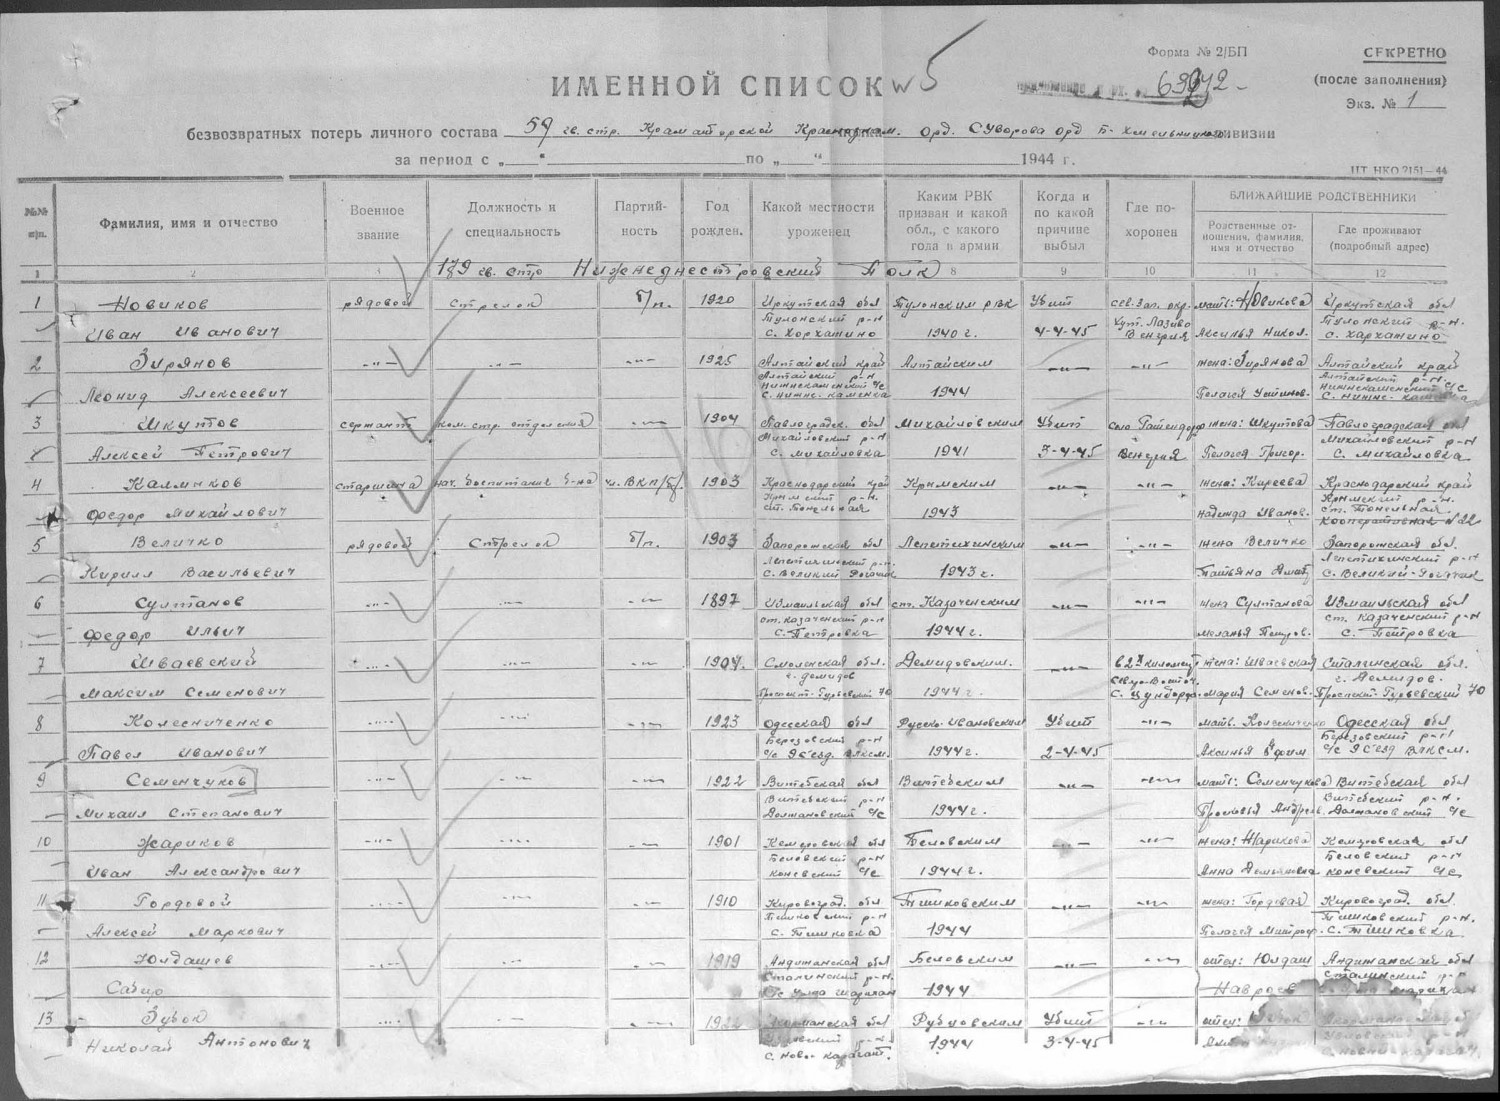 Форма № 2/БП
СЕКРЕТНО
(после заполнения)
Экз. № 1
ИМЕННОЙ СПИСОК № 5
безвозвратных потерь личного состава 59 гв. стр. Краматорской Краснознам. орд. Суворова орд Б-Хмельницкого дивизии
за период с „ “ по „ “ 1944 г.
ЦТ НКО 7151—44
№№ п/п.
Фамилия, имя и отчество
Военное звание
Должность и специальность
Партий-ность
Год рожден.
Какой местности уроженец
Каким РВК призван и какой обл., с какого года в армии
Когда и по какой причине выбыл
Где по-хоронен
БЛИЖАЙШИЕ РОДСТВЕННИКИ
Родственные от-ношения, фамилия, имя и отчество
Где проживают (подробный адрес)
1 2 8 9 10 11 12
179 гв. стр Нижнеднестровский Полк
1 Новиков рядовой стрелок б/п. 1920 Иркутская обл Тулонским рвк Убит сев. зап. окр. мать: Новикова Иркутская обл
Тулонский р-н хут. Тулонский р-н.
Иван Иванович 1940 г. 4-4-45 Венгрия Аксинья Никол.
2 Зирянов -"- -"- -"- 1925 Алтайский край Алтайским -"- -"- жена: Зирянова Алтайский край
Алтайский р-н Алтайский р-н
Леонид Алексеевич с. Нижне-Каменка 1944 Пелагея Устинов.
3 Шкутов сержант ком. стр. отделения -"- 1904 Павлоградск. обл Михайловским Убит жена: Шкутова Павлоградская обл
Михайловский р-н Михайловский р-н
Алексей Петрович с. Михайловка 1941 3-4-45 Венгрия Пелагея Григор. с. Михайловка
4 Калмыков старшина чл. ВКП/б/. 1903 Краснодарский край Крымским -"- -"- жена: Киреева Краснодарский край
Крымский р-н. Крымский р-н.
Федор Михайлович ст. Тонельная 1943 Надежда Иванов. ст. Тонельная
Кооперативная №22
5 Величко рядовой стрелок б/п. 1903 Запорожская обл Лепетихинским -"- -"- жена Величко Запорожская обл.
Лепетихинский р-н. Лепетихинский р-н
Кирилл Васильевич с. Великий Рогачик 1943 г. Татьяна с. Великий-Рогачик
6 Султанов -"- -"- -"- 1897 Измаильская обл ст. Казаченским -"- -"- жена Султанова Измаильская обл
ст. Казаченский р-н ст. Казаченский р-н
Федор Ильич с. Петровка 1944 г. Меланья Петров. с. Петровка
7 Иваевский -"- -"- -"- 1907. Смоленская обл. Демидовским. -"- жена: Иваевская Сталинская обл.
г. Демидов г. Демидов.
Максим Семенович Проспект-Гурьевский 70 1944 г. Мария Семенов. Проспект Гурьевский 70
8 Колесниченко -"- -"- -"- 1923 Одесская обл Русско-Ивановским Убит -"- мать. Колесниченко Одесская обл
Березовский р-н Березовский р-н
Павел Иванович с/с 9 съезд ВЛКСМ. 1944 г. 2-4-45 Аксинья Ефим. с/с 9 съезд ВЛКСМ.
9 Семенчуков -"- -"- -"- 1922 Витебская обл Витебским -"- -"- мать: Семенчукова Витебская обл
Витебский р-н Витебский р-н.
Михаил Степанович Должановский с/с 1944 г. Прасковья Андреев. Должановский с/с
10 Жариков -"- -"- -"- 1901 Кемеровская обл Беловским -"- -"- жена: Жарикова Кемеровская обл
Беловский р-н Беловский р-н
Иван Александрович Коневский с/с 1944 г. Анна Демьяновна Коневский с/с
11 Гордовой -"- -"- -"- 1910 Кировоград. обл Тишковским -"- -"- жена: Гордовая Кировоград. обл.
Тишковский р-н Тишковский р-н.
Алексей Маркович с. Тишковка 1944 Пелагея Митроф. с. Тишковка
12 Юлдашев -"- -"- -"- 1919 Андижанская обл Беловским -"- -"- отец: Юлдаш Андижанская обл
Сталинский р-н. Сталинский р-н
Сабир 1944
13 Зубок -"- -"- -"- Рубцовским Убит -"- отец:
Николай Антонович 1944 3-4-45